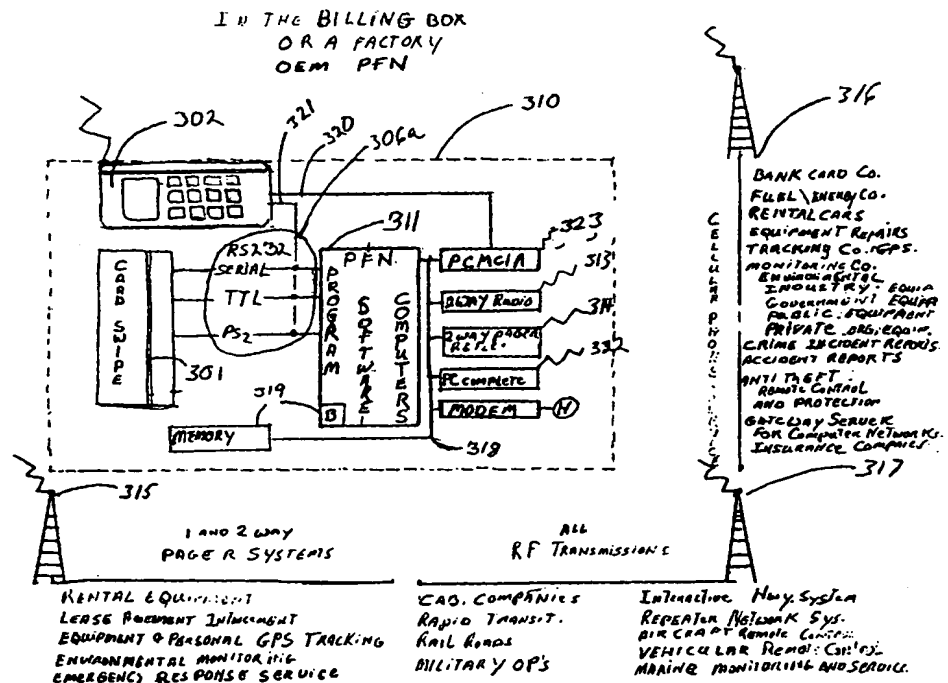 IN THE BILLING BOX
OR A FACTORY
OEM PFN
302
321
320
306a
310
316
311
RS232
SERIAL
TTL
PS2
CARD SWIPE
301
PFN
PROGRAM
SOFTWARE
COMPUTERS
B
PCMCIA
323
2WAY RADIO
313
2 WAY PAGER
314
PC COMPLETE
332
MODEM
N
MEMORY
319
318
CELLULAR PHONE SERVICE
BANK CARD CO.
FUEL\ENERGY CO.
RENTAL CARS
EQUIPMENT REPAIRS
TRACKING CO. GPS.
MONITORING CO.
ENVIRONMENTAL
INDUSTRY. EQUIP
GOVERNMENT EQUIP
PUBLIC. EQUIPMENT
PRIVATE. ORG. EQUIP.
CRIME INCIDENT REPORTS.
ACCIDENT REPORTS
ANTI THEFT.
REMOTE CONTROL
AND PROTECTION
GATEWAY SERVER
FOR COMPUTER NETWORKS.
INSURANCE COMPANIES
315
317
1 AND 2 WAY
PAGER SYSTEMS
ALL
RF TRANSMISSIONS
RENTAL EQUIPMENT
LEASE
EQUIPMENT & PERSONAL GPS TRACKING
ENVIRONMENTAL MONITORING
EMERGENCY RESPONSE SERVICE
CAB. COMPANIES
RAPID TRANSIT.
RAIL ROADS
MILITARY OP'S
INTERACTIVE HWY. SYSTEM
REPEATER NETWORK SYS.
AIR CRAFT REMOTE CONTROL
VEHICULAR REMOTE CONTROL
MARINE MONITORING AND SERVICE.